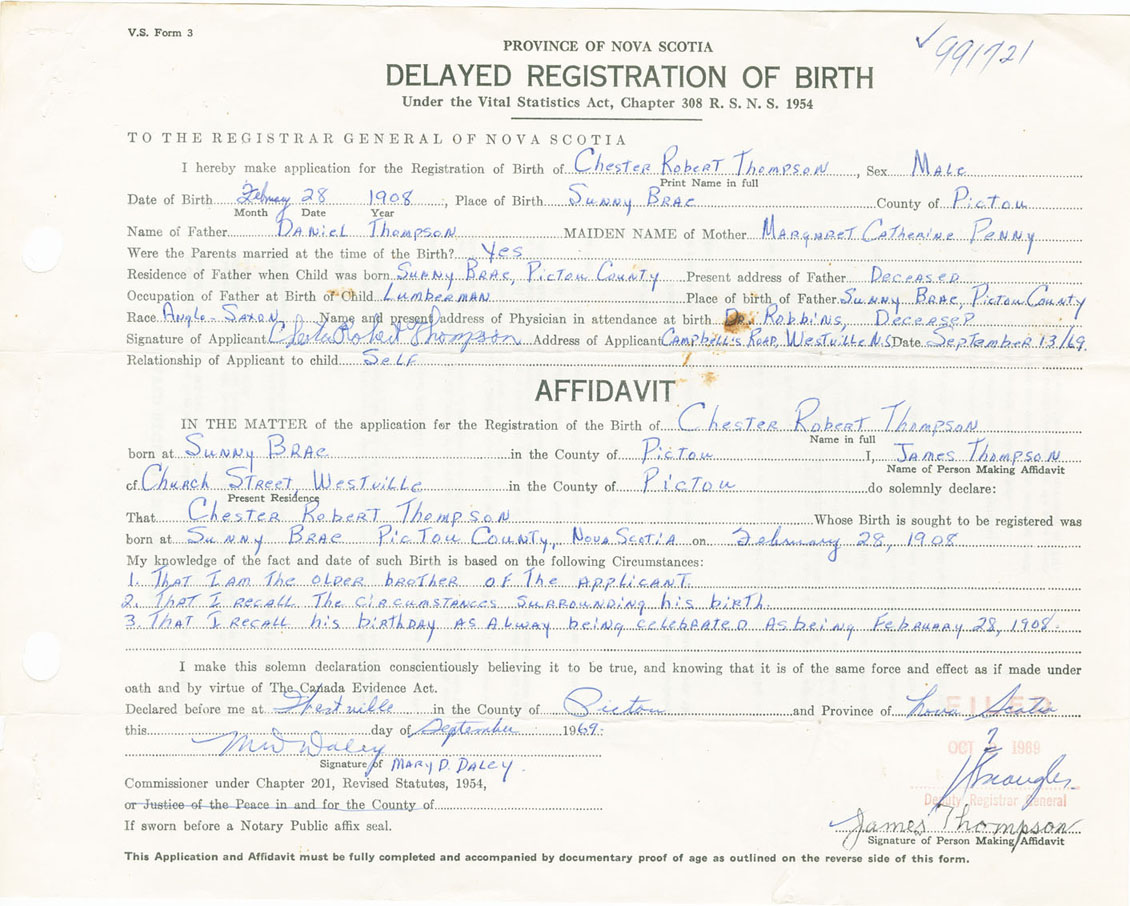 V.S. Form 3
991721
PROVINCE OF NOVA SCOTIA
DELAYED REGISTRATION OF BIRTH
Under the Vital Statistics Act, Chapter 308 R. S. N. S. 1954
TO THE REGISTRAR GENERAL OF NOVA SCOTIA
I hereby make application for the Registration of Birth of Chester Robert Thompson, Sex Male
Print Name in full
Date of Birth February 28 1908, Place of Birth Sunny Brae County of Pictou
Month Date Year
Name of Father Daniel Thompson MAIDEN NAME of Mother Margaret Catherine Penny
Were the Parents married at the time of the Birth? Yes
Residence of Father when Child was born Sunny Brae, Pictou County Present address of Father Deceased
Occupation of Father at Birth of Child Lumberman Place of birth of Father Sunny Brae, Pictou County
Race Anglo-Saxon Name and present address of Physician in attendance at birth Dr. Robbins, Deceased
Signature of Applicant Chester Robert Thompson Address of Applicant Campbell's Road, Westville NS Date September 13/69
Relationship of Applicant to child Self
AFFIDAVIT
IN THE MATTER of the application for the Registration of the Birth of Chester Robert Thompson
Name in full
born at Sunny Brae in the County of Pictou I, James Thompson
Name of Person Making Affidavit
of Church Street, Westville in the County of Pictou do solemnly declare:
Present Residence
That Chester Robert Thompson Whose Birth is sought to be registered was
born at Sunny Brae Pictou County, Nova Scotia on February 28, 1908
My knowledge of the fact and date of such Birth is based on the following Circumstances:
1. That I am the older brother of the applicant.
2. That I recall the circumstances surrounding his birth.
3. That I recall his birthday as alway being celebrated as being February 28, 1908.
I make this solemn declaration conscientiously believing it to be true, and knowing that it is of the same force and effect as if made under
oath and by virtue of The Canada Evidence Act.
Declared before me at Westville in the County of Pictou and Province of Nova Scotia
FILED
this day of September 1969.
OCT 7 1969
Signature of Mary D. Daley.
Commissioner under Chapter 201, Revised Statutes, 1954,
Deputy Registrar General
or Justice of the Peace in and for the County of
If sworn before a Notary Public affix seal.
James Thompson
Signature of Person Making Affidavit
This Application and Affidavit must be fully completed and accompanied by documentary proof of age as outlined on the reverse side of this form.